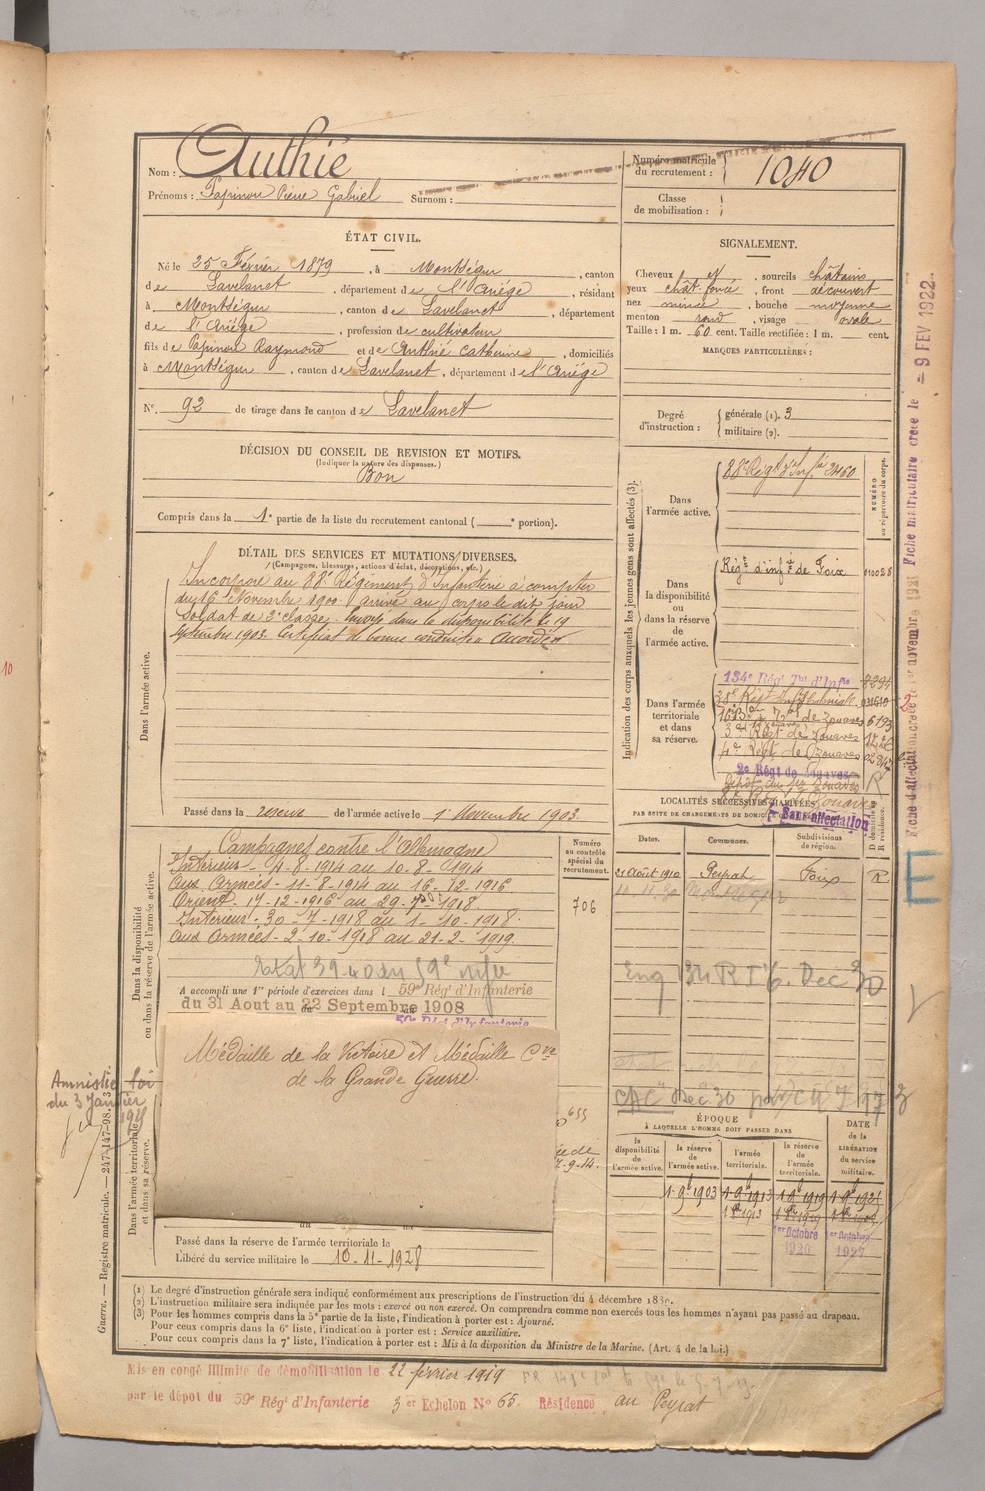 Nom : Authié
Prénoms : Papinou Pierre Gabriel Surnom :
Numéro matricule du recrutement : 1040
Classe de mobilisation :
ÉTAT CIVIL.
Né le 25 Février 1879, à Montségur, canton
de Lavelanet, département de l'Ariège, résidant
à Montségur, canton de Lavelanet, département
de l'Ariège, profession de cultivateur
fils de Papinou Raymond et de Authié Catherine, domiciliés
à Montségur, canton de Lavelanet, département de l'Ariège
N° 92 de tirage dans le canton de Lavelanet
SIGNALEMENT.
Cheveux et, sourcils châtains
yeux chât. foncé, front découvert
nez mince, bouche moyenne
menton rond, visage ovale
Taille : 1 m. 60 cent. Taille rectifiée : 1 m. cent.
MARQUES PARTICULIÈRES :
Degré d'instruction : générale (1). 3
militaire (2).
DÉCISION DU CONSEIL DE REVISION ET MOTIFS.
(Indiquer la nature des dispenses.)
Bon
Compris dans la 1e partie de la liste du recrutement cantonal ( e portion).
DÉTAIL DES SERVICES ET MUTATIONS DIVERSES.
(Campagnes, blessures, actions d'éclat, décorations, etc.)
Dans l'armée active.
Incorporé au 88e Régiment d'Infanterie à compter
du 16 Novembre 1900. arrivé au corps le dit jour
Soldat de 2e classe. Envoyé dans la disponibilité le 19
Septembre 1903. Certificat de bonne conduite « Accordé »
Passé dans la réserve de l'armée active le 1 Novembre 1903.
Indication des corps auxquels les jeunes gens sont affectés (3).
NUMÉRO au répertoire du corps.
Dans l'armée active.
88e Régt d'Infie 2460
Dans la disponibilité ou dans la réserve de l'armée active.
Régt d'infie de Foix 01008
Dans l'armée territoriale et dans sa réserve.
134e Régt Tal d'Infie 8294
de Zouaves 6193
3e Régt de Zouaves
4e Régt de Zouaves
2e Régt de Zouaves R
Dépôt du Zouaves
Sans affectation
LOCALITÉS SUCCESSIVES HABITÉES
PAR SUITE DE CHANGEMENTS DE DOMICILE
D domicile R résidence.
Dates. Communes. Subdivisions de région.
21 Août 1910 Peyrat Foix R
10.11.30 Montségur
Dans la disponibilité ou dans la réserve de l'armée active.
Numéro au contrôle spécial du recrutement.
706
Campagnes contre l'Allemagne
Intérieur - 4-8-1914 au 10-8-1914
Aux Armées - 11-8-1914 au 16-12-1916
Orient - 17-12-1916 au 29-7-1918.
Intérieur - 30-7-1918 au 1-10-1918.
Aux Armées - 2-10-1918 au 21-2-1919.
A accompli une 1re période d'exercices dans l 59e Rég' d'Infanterie
du 31 Aout au 22 Septembre 1908
Médaille de la Victoire et Médaille Cve
de la Grande Guerre.
Amnistié loi
du 3 Janvier
1925
Dans l'armée territoriale et dans sa réserve.
655
7-9-14.
Dec 30
ÉPOQUE
À LAQUELLE L'HOMME DOIT PASSER DANS
DATE de la LIBÉRATION du service militaire.
la disponibilité de l'armée active.
la réserve de l'armée active.
l'armée territoriale.
la réserve de l'armée territoriale.
1-9bre 1903 1-9bre 1913 1-9bre 1919
1er Octobre 1920
1er Octobre 1927
Passé dans la réserve de l'armée territoriale le
Libéré du service militaire le 10-11-1928
(1) Le degré d'instruction générale sera indiqué conformément aux prescriptions de l'instruction du 4 décembre 1889.
(2) L'instruction militaire sera indiquée par les mots : exercé ou non exercé. On comprendra comme non exercés tous les hommes n'ayant pas passé au drapeau.
(3) Pour les hommes compris dans la 5e partie de la liste, l'indication à porter est : Ajourné.
Pour ceux compris dans la 6e liste, l'indication à porter est : Service auxiliaire.
Pour ceux compris dans la 7e liste, l'indication à porter est : Mis à la disposition du Ministre de la Marine. (Art. 4 de la loi.)
Guerre. — Registre matricule. — 247-147-98.
Mis en congé illimité de démobilisation le 22 février 1919
par le dépot du 59e Rég' d'Infanterie 3 er Echelon No 65 Résidence au Peyrat
Fiche matriculaire créée le - 9 FEV 1922
Fiche d'affectation créée le 1er novembre 1921
E